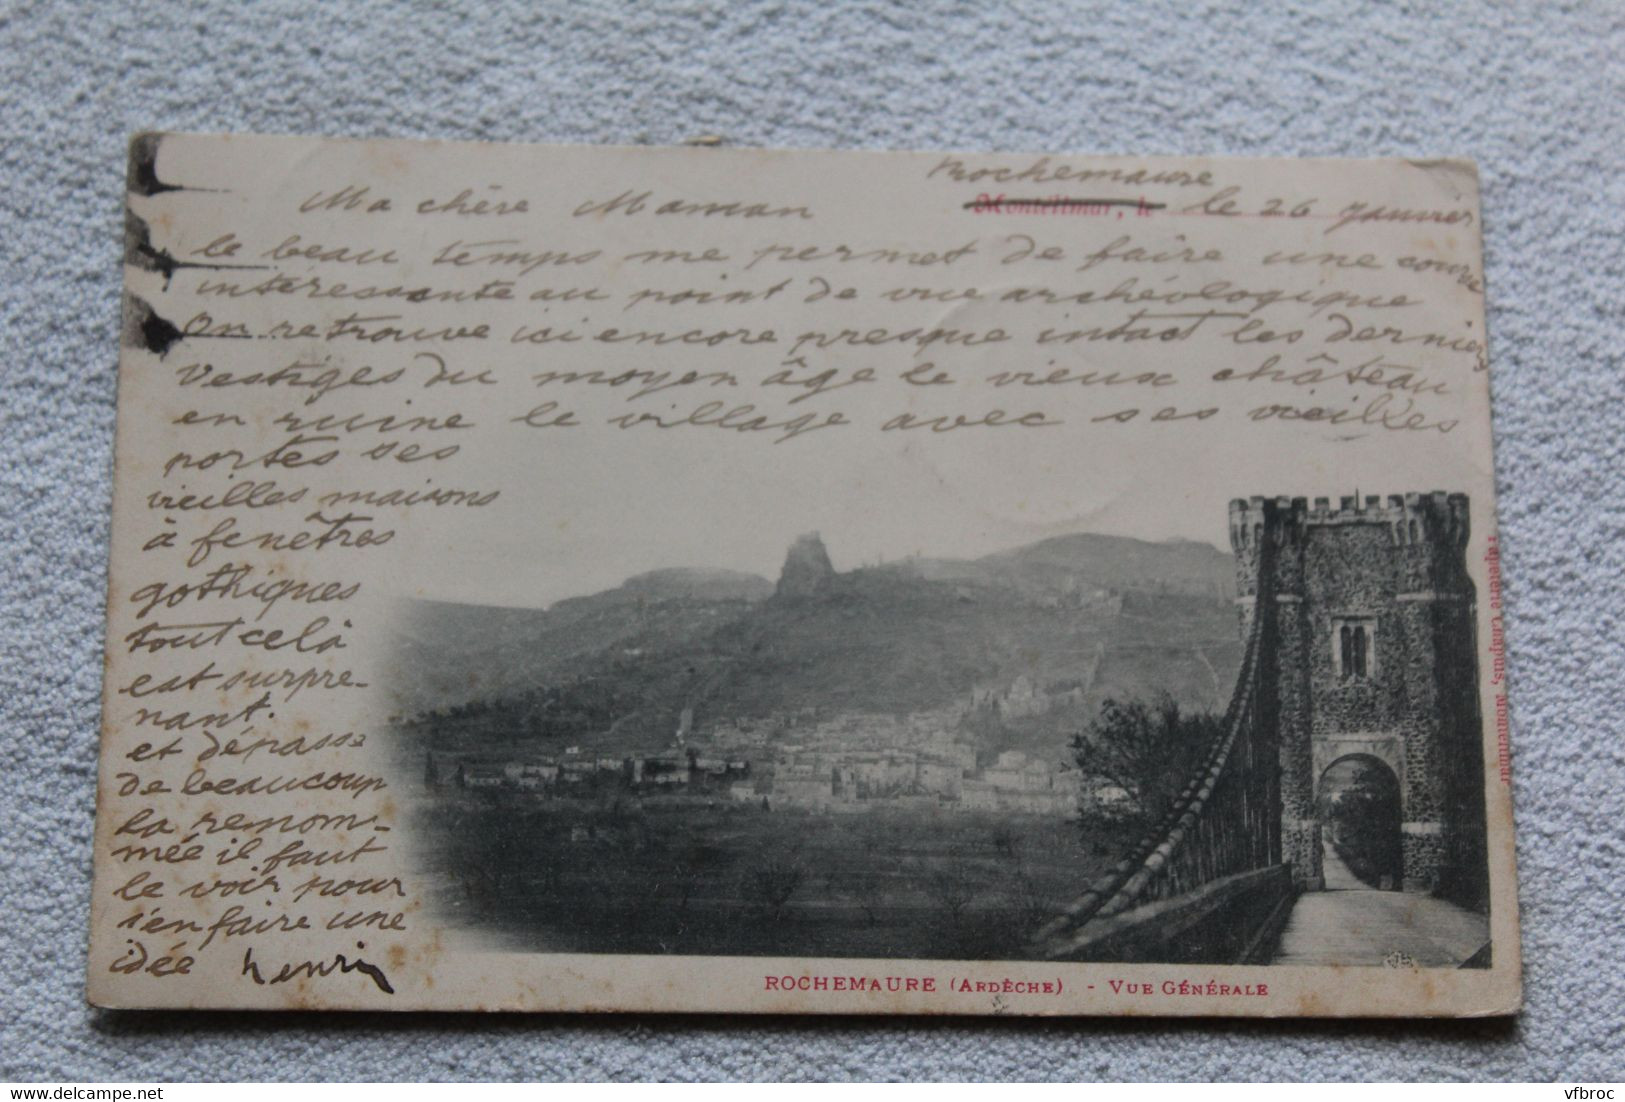 Rochemaure
Montélimar, le le 26 Janvier
Ma chère Maman
le beau temps me permet de faire une course
intéressante au point de vue archéologique
On retrouve ici encore presque intact les derniers
vestiges du moyen âge le vieux château
en ruine le village avec ses vieilles
portes ses
vieilles maisons
à fenêtres
gothiques
tout celà
est surpre-
nant.
et dépasse
de beaucoup
la renom-
mée il faut
le voir pour
s'en faire une
idée henri
ROCHEMAURE (ARDÈCHE) - VUE GÉNÉRALE
Papeterie Chapuis, Montélimar
delcampe.net
vfbroc